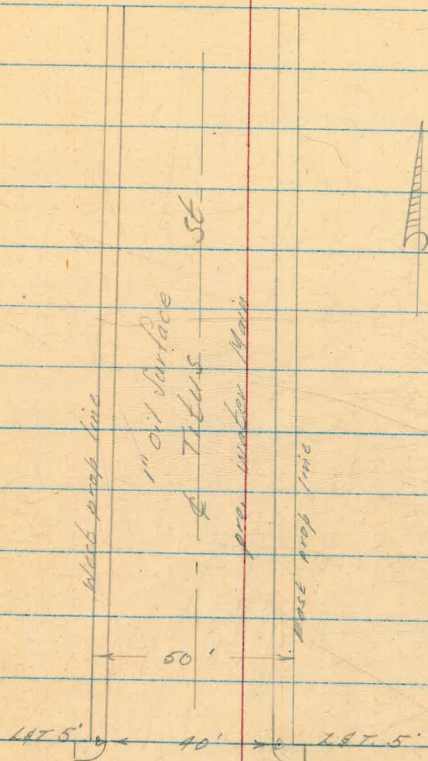 West prop line
1" Oil Surface
℄ Titus St
pro. water Main
East prop line
50'
L&T. 5'
40'
L&T. 5'